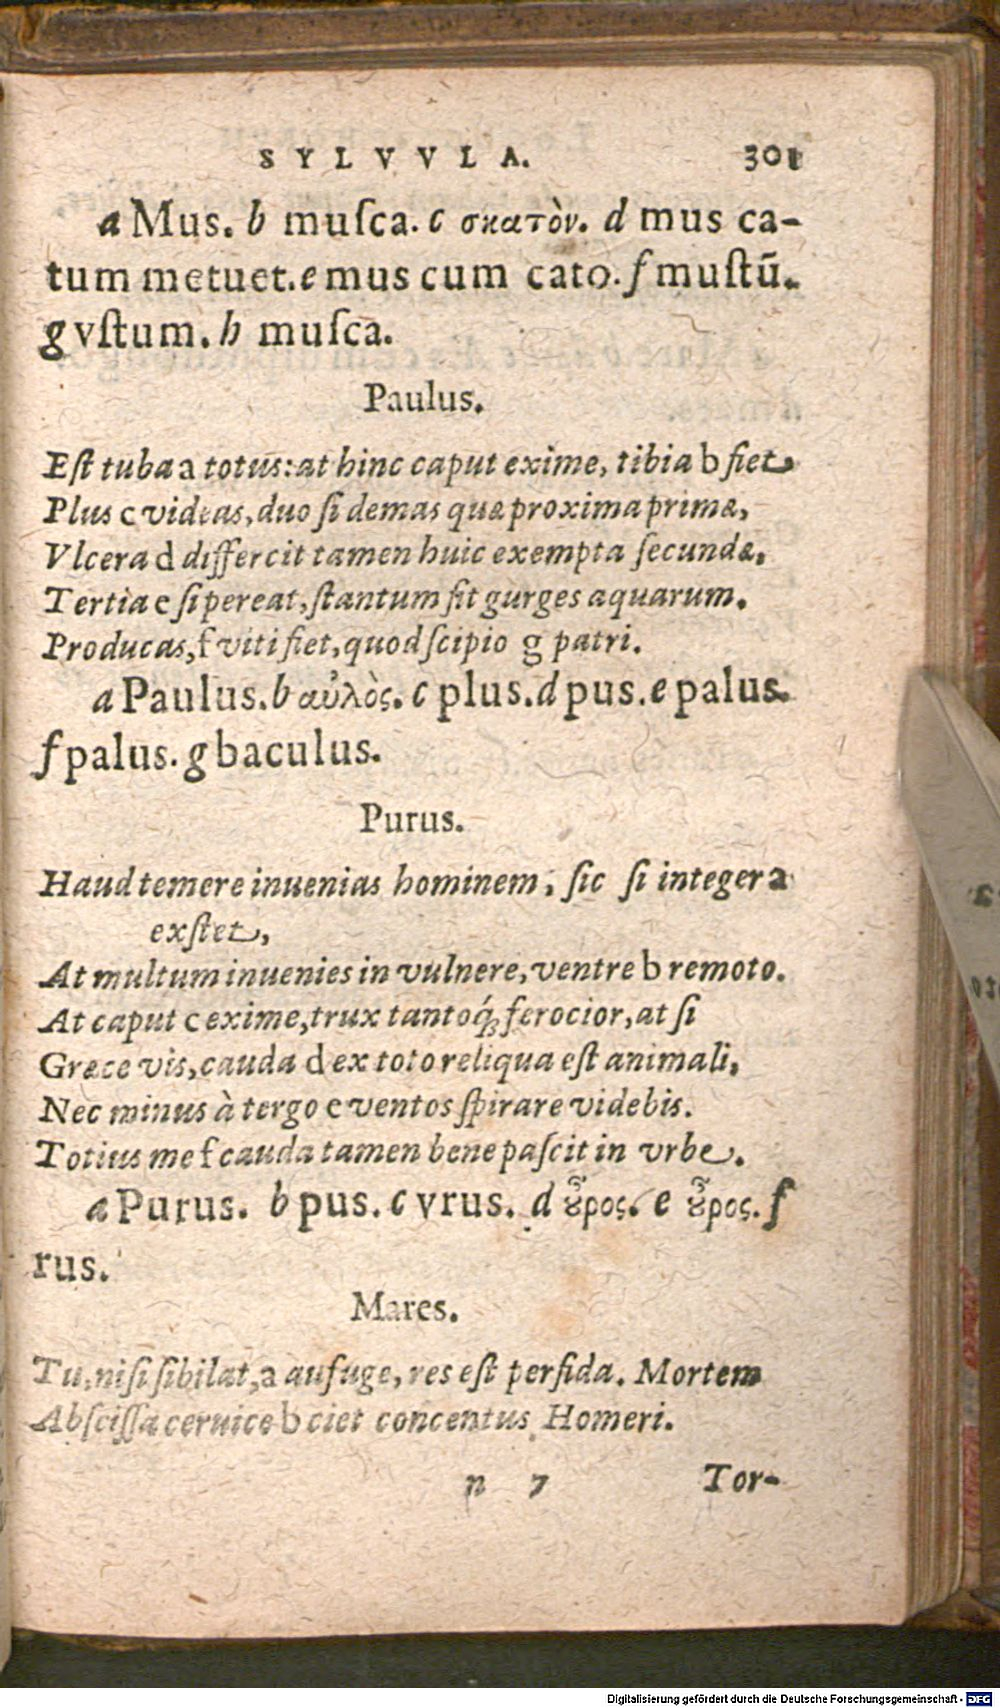 SYLVVLA. 301
a Mus. b muſca. c σκατὸν. d mus ca-
tum metuet. e mus cum cato. f muſtū.
g vſtum. h muſca.
Paulus.
Eſt tuba a totus: at hinc caput exime, tibia b fiet,
Plus c videas, duo ſi demas quæ proxima primæ,
Vlcera d differcit tamen huic exempta ſecundæ.
Tertia e ſi pereat, ſtantum fit gurges aquarum.
Producas, f viti fiet, quod ſcipio g patri.
a Paulus. b αὐλὸς. c plus. d pus. e palus.
f palus. g baculus.
Purus.
Haud temere inuenias hominem, ſic ſi integer a
exſtet,
At multum inuenies in vulnere, ventre b remoto.
At caput c exime, trux tantoq́; ferocior, at ſi
Græce vis, cauda d ex toto reliqua eſt animali,
Nec minus à tergo e ventos ſpirare videbis.
Totius me f cauda tamen bene paſcit in vrbe.
a Purus. b pus. c vrus. d ȣ̓͂ρος. e ȣ̓͂ρος. f
rus.
Mares.
Tu, niſi ſibilat, a aufuge, res eſt perfida. Mortem
Abſciſſa ceruice b ciet concentus Homeri.
n 7 Tor-
Digitalisierung gefördert durch die Deutsche Forschungsgemeinschaft - DFG